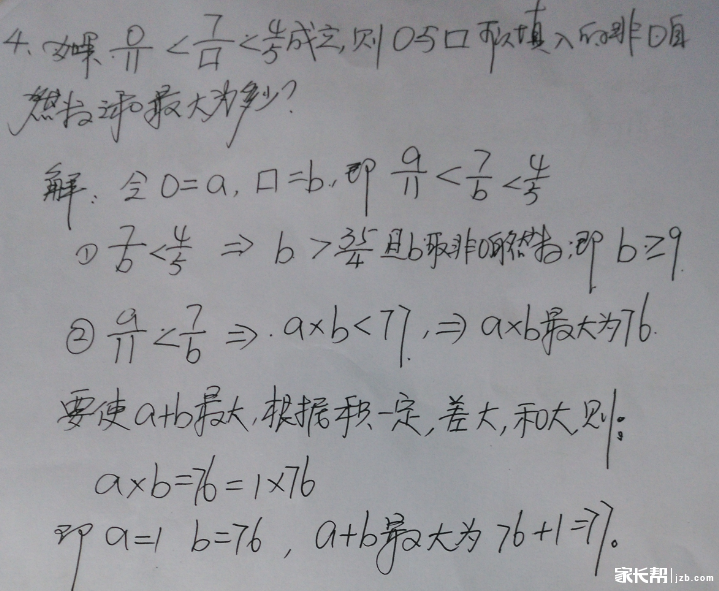 4、如果 ○/11 < 7/□ < 4/5 成立,则○与□可以填入的非0自
然数之和最大为多少?
解:令○=a,□=b,即 a/11 < 7/b < 4/5
① 7/b < 4/5 ⇒ b > 35/4 且b取非0自然数;即 b≥9
② a/11 < 7/b ⇒ a×b<77,⇒ a×b最大为76.
要使a+b最大,根据积一定,差大,和大,则:
a×b=76=1×76
即 a=1 b=76,a+b最大为 76+1=77。
家长帮 jzb.com